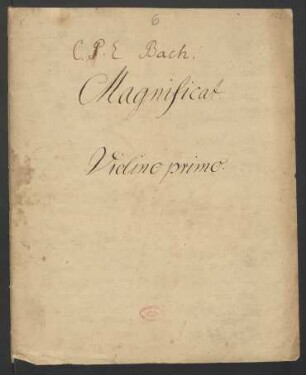 6
C. P. E Bach.
Magnificat
Violino primo.